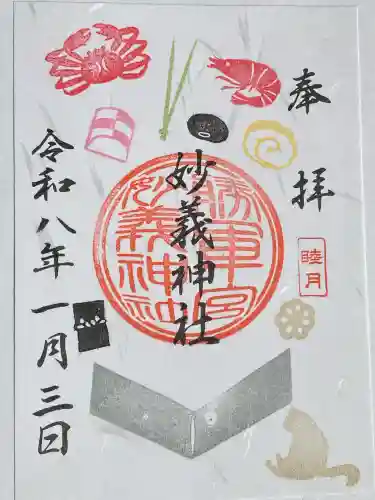 奉拝
睦月
妙義神社
勝軍宮
妙義神社
令和八年一月三日